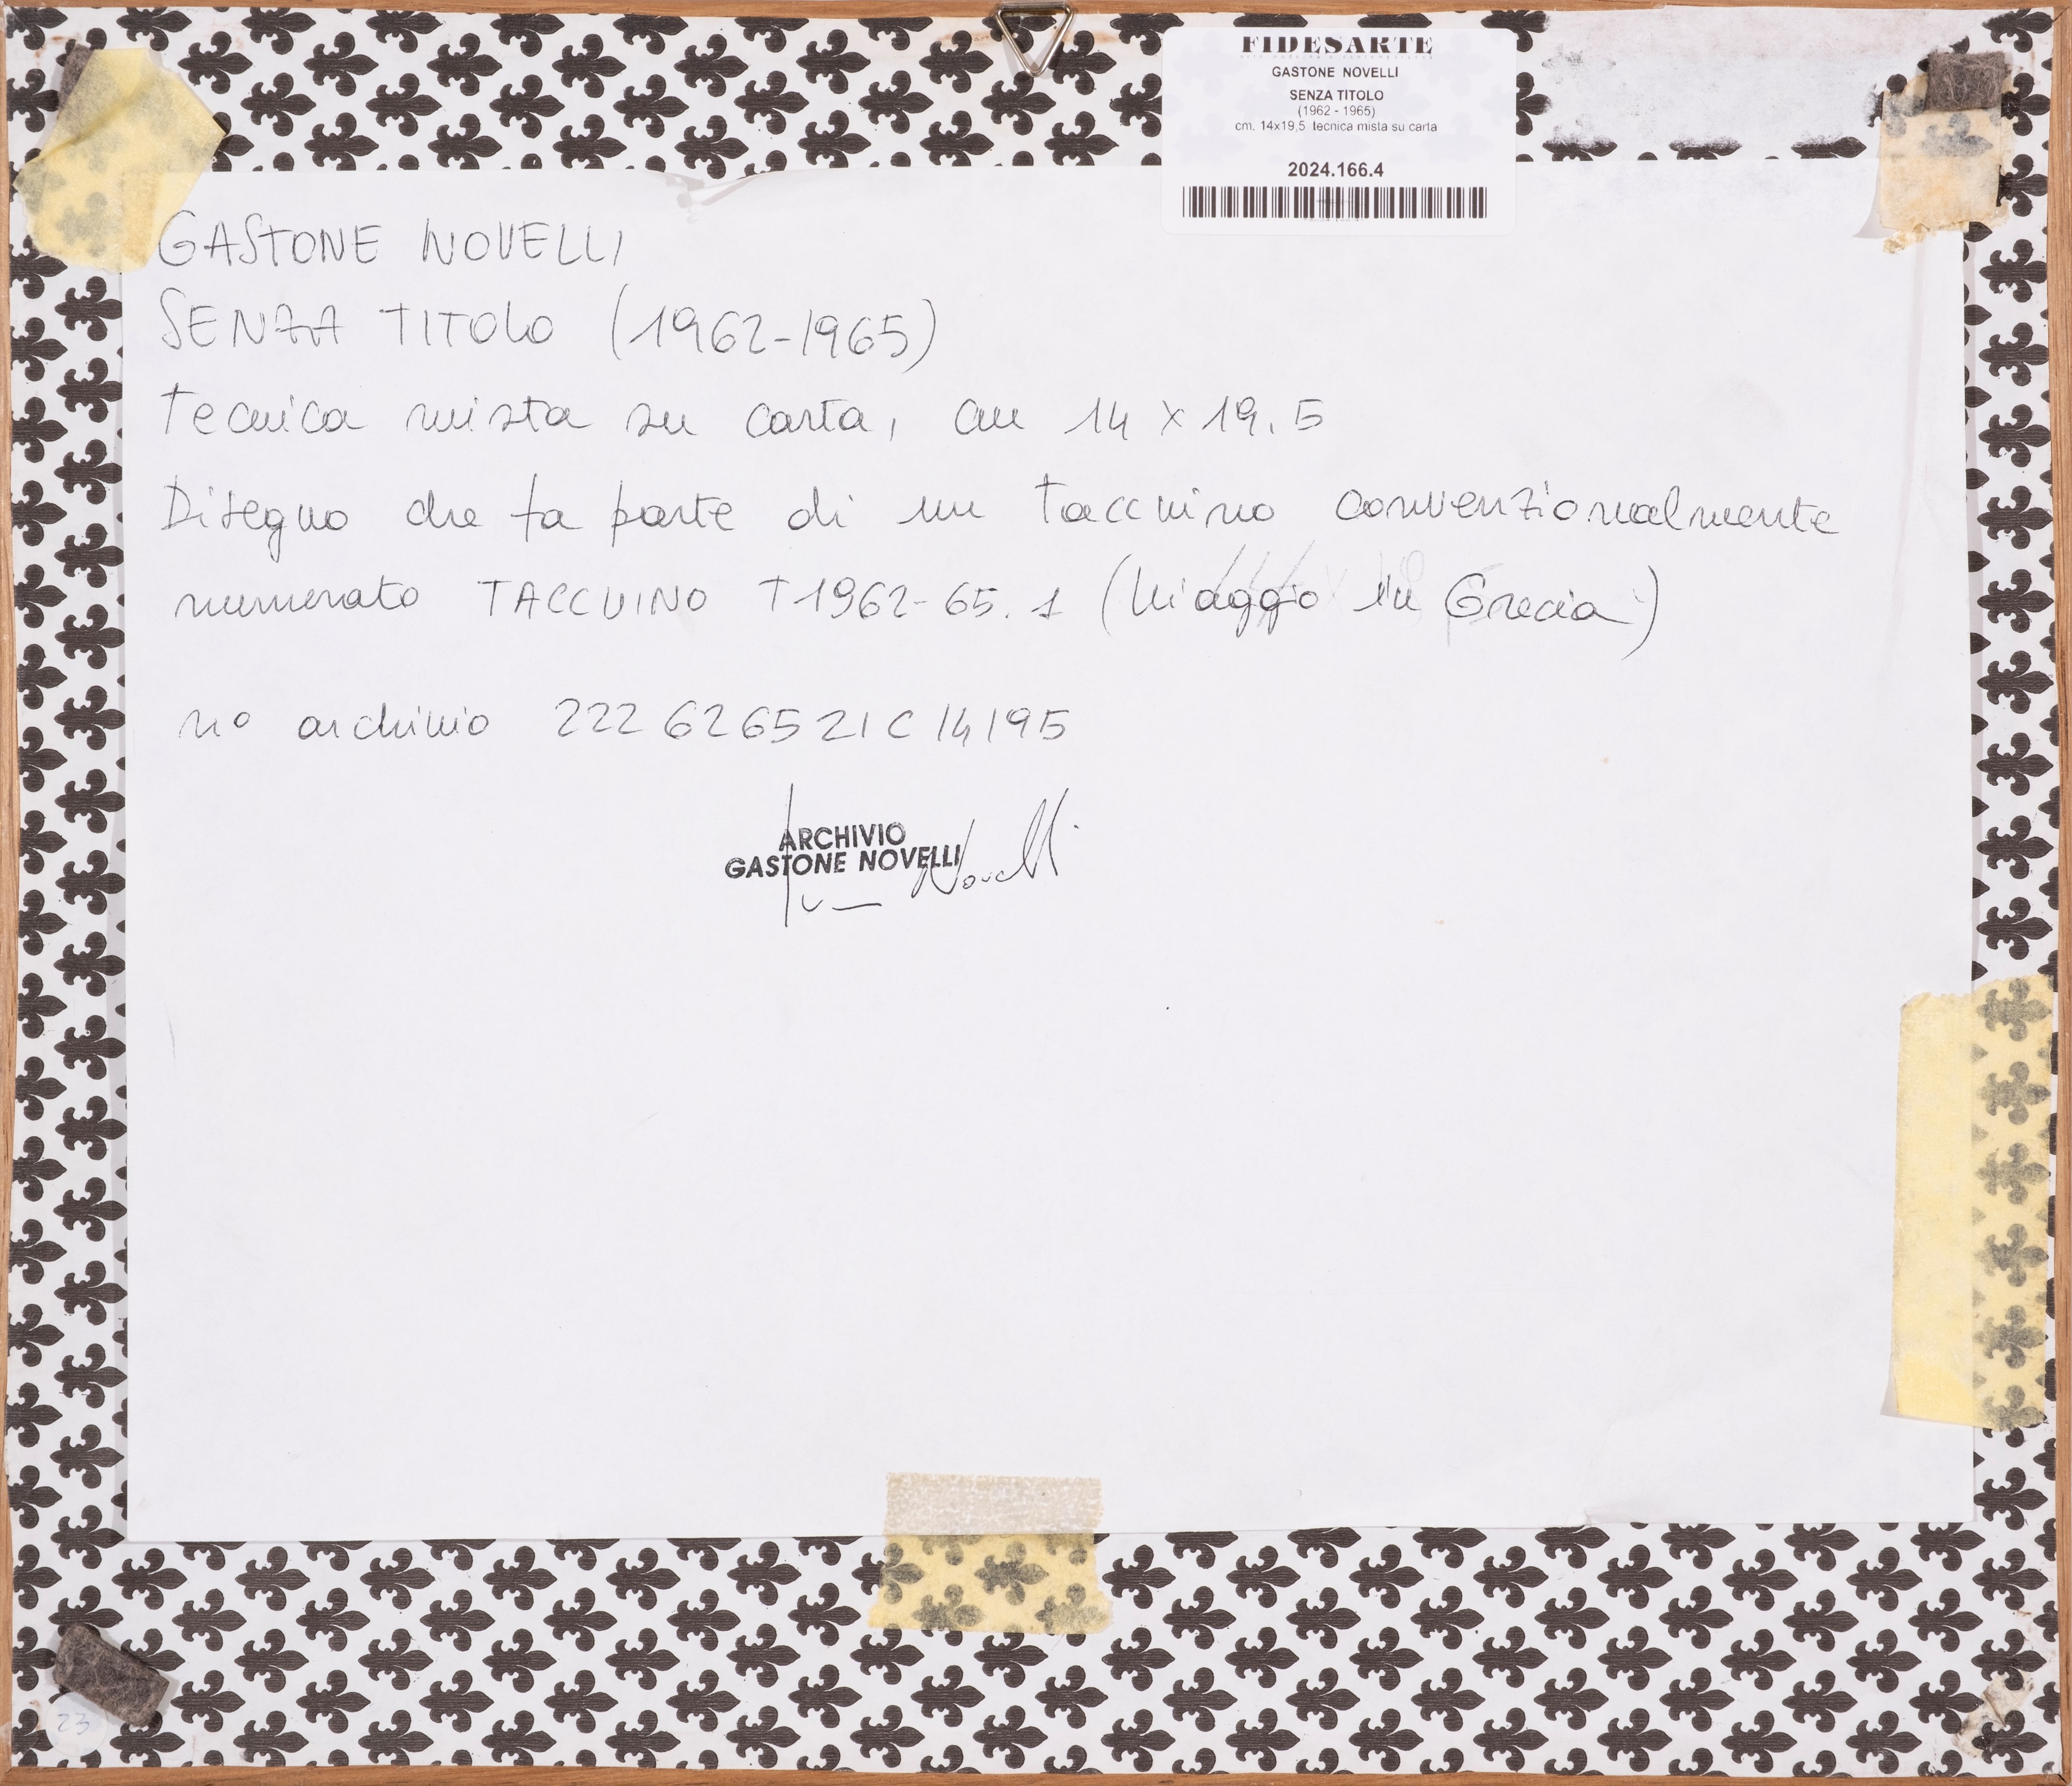 FIDESARTE
GASTONE NOVELLI
SENZA TITOLO
(1962 - 1965)
cm. 14x19,5 tecnica mista su carta
2024.166.4
GASTONE NOVELLI
SENZA TITOLO (1962-1965)
tecnica mista su carta, cm 14 x 19.5
Disegno che fa parte di un taccuino convenzionalmente
numerato TACCUINO T1962-65.1 (Viaggio in Grecia)
n° archivio 222 6265 21C 14195
ARCHIVIO
GASTONE NOVELLI
Novelli
23